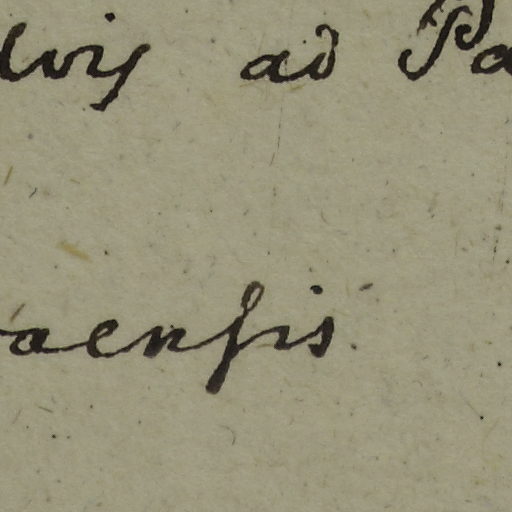 lvis ad Pa
aensis